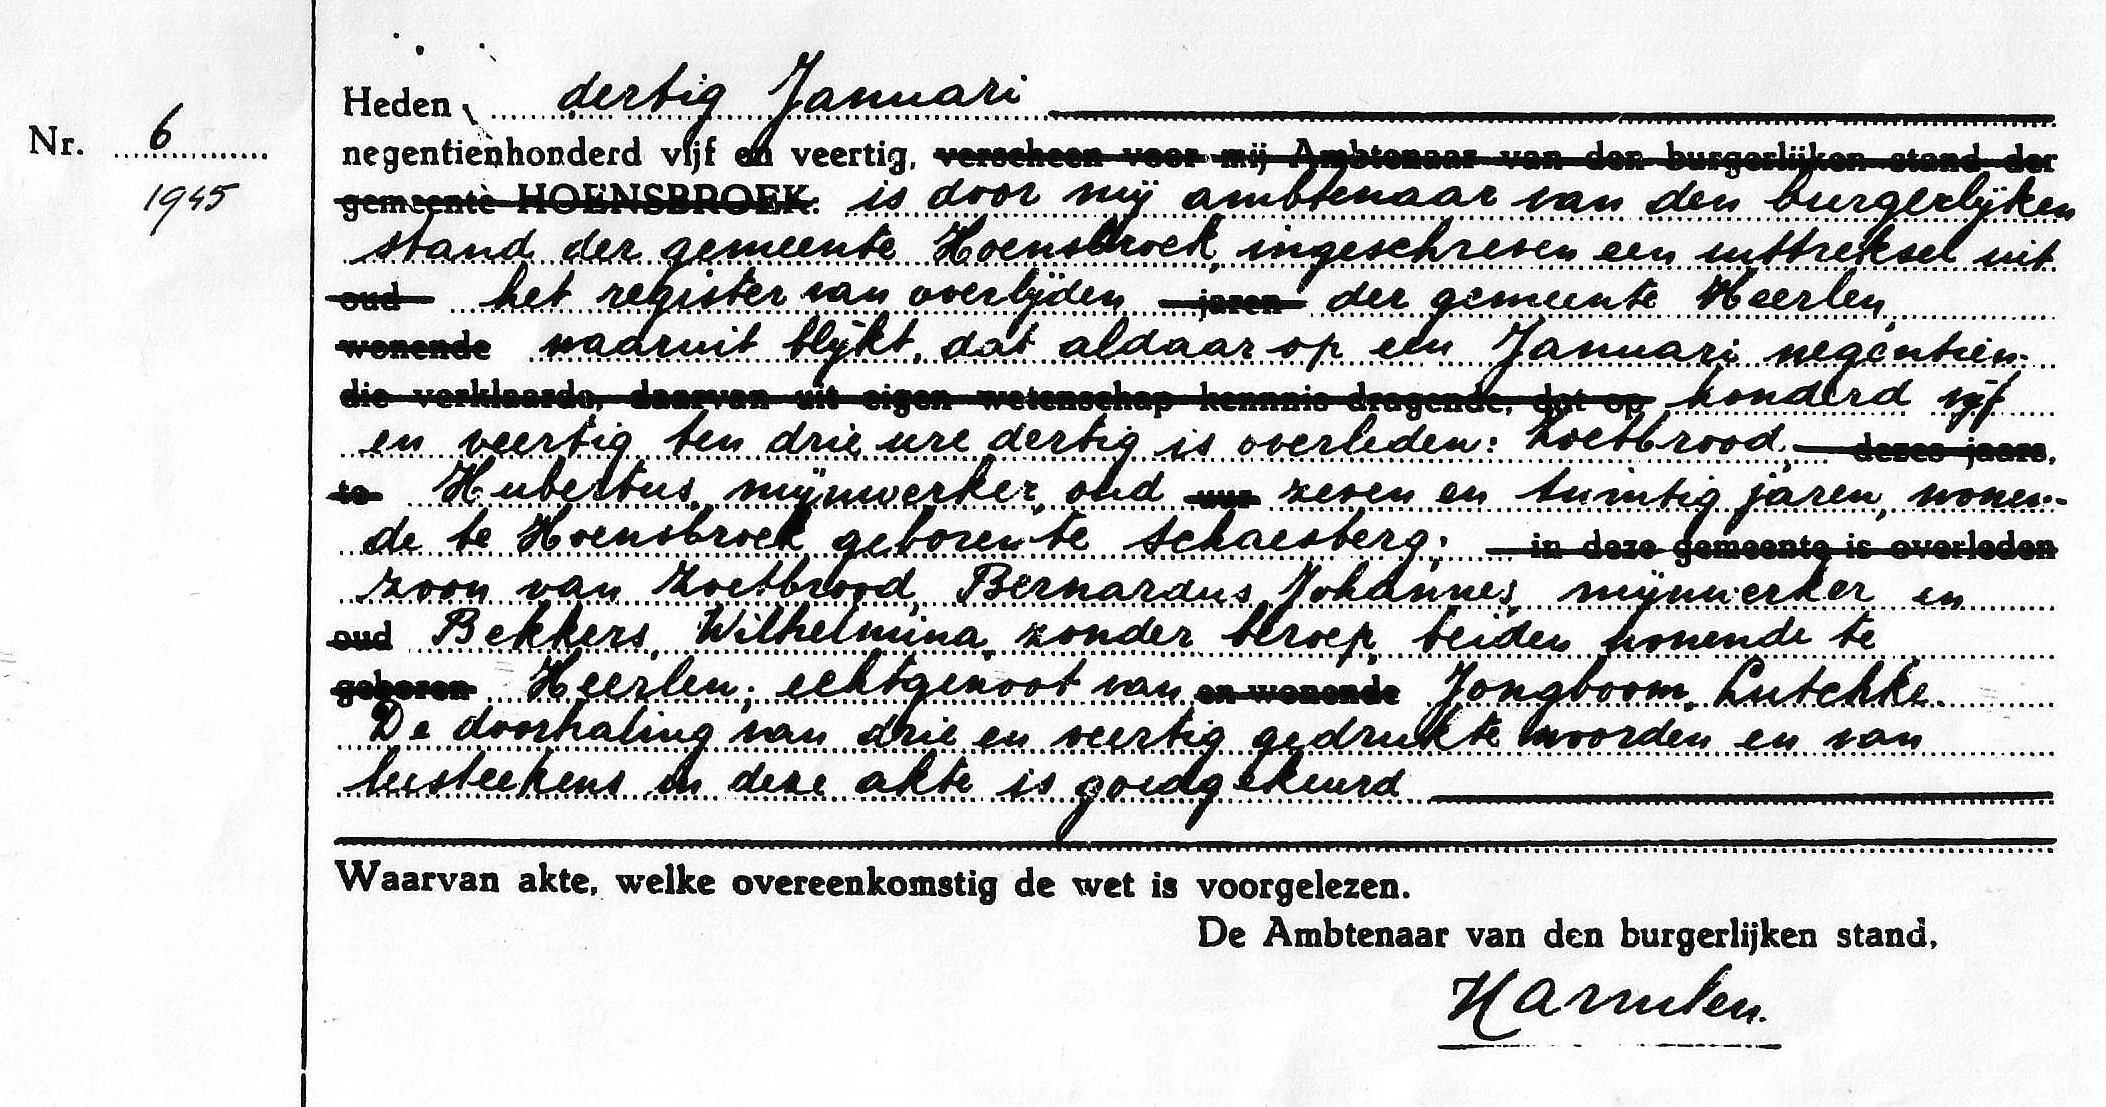 Heden, dertig Januari
Nr. 6
negentienhonderd vijf en veertig, verscheen voor mij Ambtenaar van den burgerlijken stand der
1945
gemeente HOENSBROEK: is door mij ambtenaar van den burgerlijken
stand der gemeente Hoensbroek, ingeschreven een uittreksel uit
oud het register van overlijden jaren der gemeente Heerlen,
wonende waaruit blijkt, dat aldaar op een Januari negentien-
die verklaarde, daarvan uit eigen wetenschap kennnis dragende, dat op honderd vijf
en veertig ten drie ure dertig is overleden: Zoetbrood, dezes jaars,
te Hubertus, mijnwerker, oud uur zeven en twintig jaren, wonen-
de te Hoensbroek geboren te Schaesberg; in deze gemeente is overleden
zoon van Zoetbrood, Bernardus Johannes, mijnwerker en
oud Bekkers, Wilhelmina, zonder beroep, beiden wonende te
geboren Heerlen; echtgenoot van en wonende Jongboom, Lutchke.
De doorhaling van drie en veertig gedrukte woorden en van
leesteekens in deze akte is goedgekeurd
Waarvan akte, welke overeenkomstig de wet is voorgelezen.
De Ambtenaar van den burgerlijken stand,